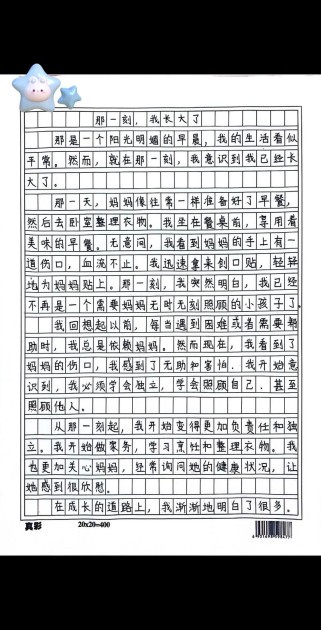 那一刻，我长大了
那是一个阳光明媚的早晨，我的生活看似
平常。然而，就在那一刻，我意识到我已经长
大了。
那一天，妈妈像往常一样准备好了早餐，
然后去卧室整理衣物。我坐在餐桌前，享用着
美味的早餐。无意间，我看到妈妈的手上有一
道伤口，血流不止。我迅速拿来创口贴，轻轻
地为妈妈贴上。那一刻，我突然明白，我已经
不再是一个需要妈妈无时无刻照顾的小孩子了。
我回想起以前，每当遇到困难或者需要帮
助时，我总是依赖妈妈。然而现在，我看到了
妈妈的伤口，我感到了无助和害怕．我开始意
识到，我必须学会独立，学会照顾自己．甚至
照顾他人。
从那一刻起，我开始变得更加负责任和独
立。我开始做家务，学习烹饪和整理衣物。我
也更加关心妈妈，经常询问她的健康状况，让
她感到很欣慰。
在成长的道路上，我渐渐地明白了很多。
真彩 20x20=400